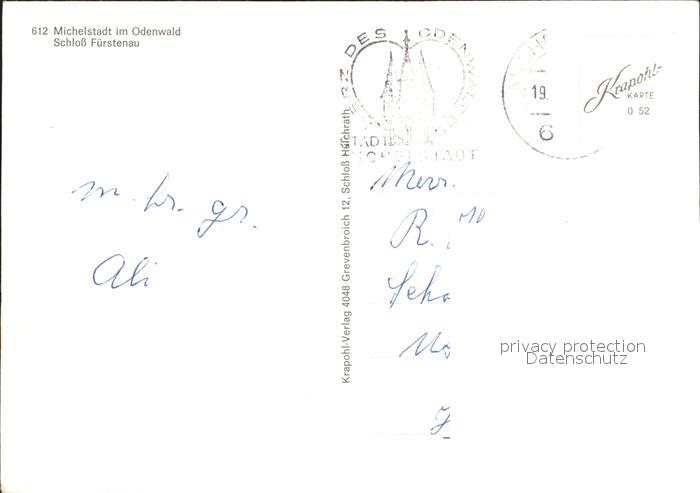 612 Michelstadt im Odenwald
Schloß Fürstenau
m. hr. gr.
Ali
Krapohl-Verlag 4048 Grevenbroich 12, Schloß Hülchrath
DES ODENWALDES
STADT
MICHELSTADT
19.
6
Krapohl-
KARTE
0 52
Herr.
R.
Scho
privacy protection
Datenschutz